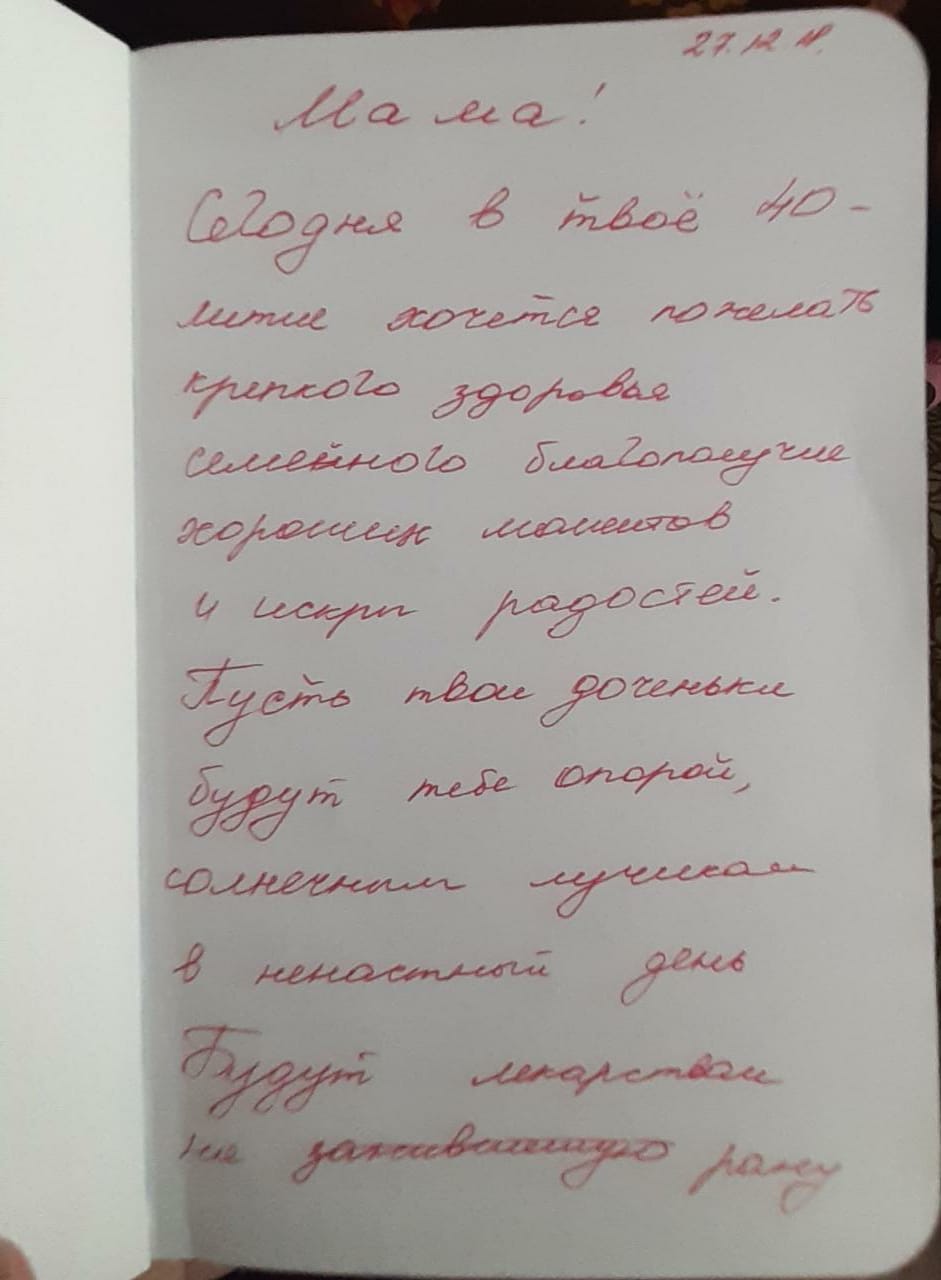 27.12.18.
Мама!
Сегодня в твоё 40-
литие хочется пожелать
крепкого здоровья
семейного благополучие
хороших моментов
и искры радостей.
Пусть твои доченьки
будут тебе опорой,
солнечным лучикам
в ненастный день
Будут лекарствам
не зажившую рану